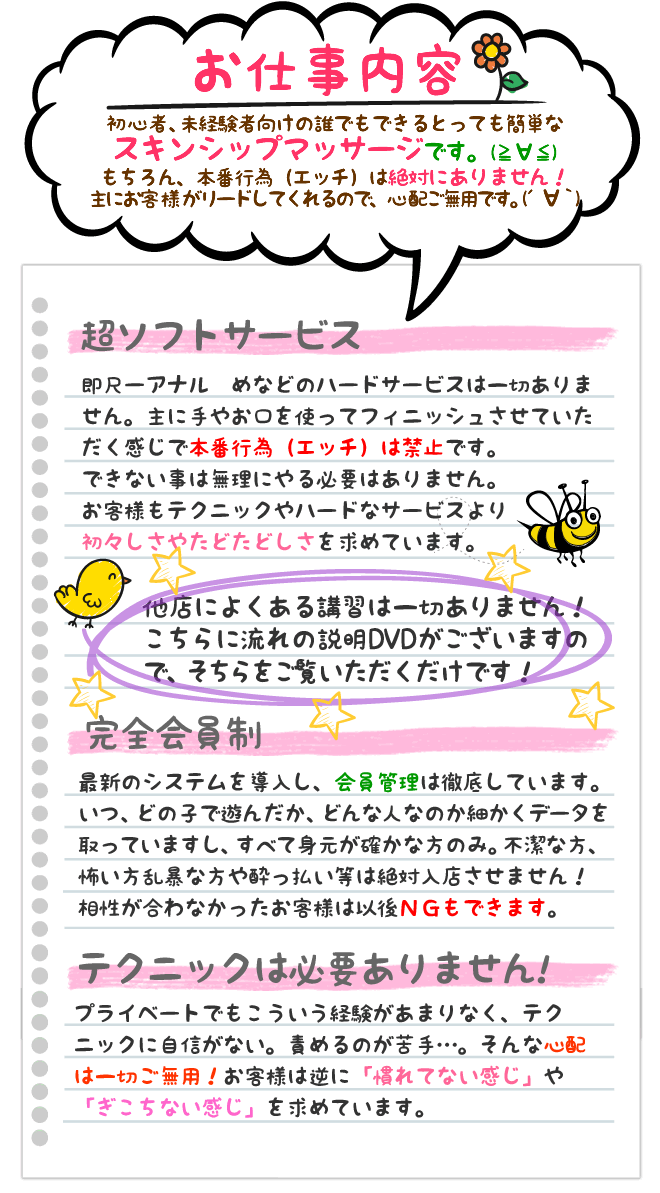 お仕事内容
初心者、未経験者向けの誰でもできるとっても簡単な
スキンシップマッサージです。(≧∀≦)
もちろん、本番行為（エッチ）は絶対にありません！
主にお客様がリードしてくれるので、心配ご無用です。(´∀｀)
超ソフトサービス
即尺ーアナル　めなどのハードサービスは一切ありま
せん。主に手やお口を使ってフィニッシュさせていた
だく感じで本番行為（エッチ）は禁止です。
できない事は無理にやる必要はありません。
お客様もテクニックやハードなサービスより
初々しさやたどたどしさを求めています。
他店によくある講習は一切ありません！
こちらに流れの説明DVDがございますの
で、そちらをご覧いただくだけです！
完全会員制
最新のシステムを導入し、会員管理は徹底しています。
いつ、どの子で遊んだか、どんな人なのか細かくデータを
取っていますし、すべて身元が確かな方のみ。不潔な方、
怖い方乱暴な方や酔っ払い等は絶対入店させません！
相性が合わなかったお客様は以後ＮＧもできます。
テクニックは必要ありません!
プライベートでもこういう経験があまりなく、テク
ニックに自信がない。責めるのが苦手…。そんな心配
は一切ご無用！お客様は逆に「慣れてない感じ」や
「ぎこちない感じ」を求めています。